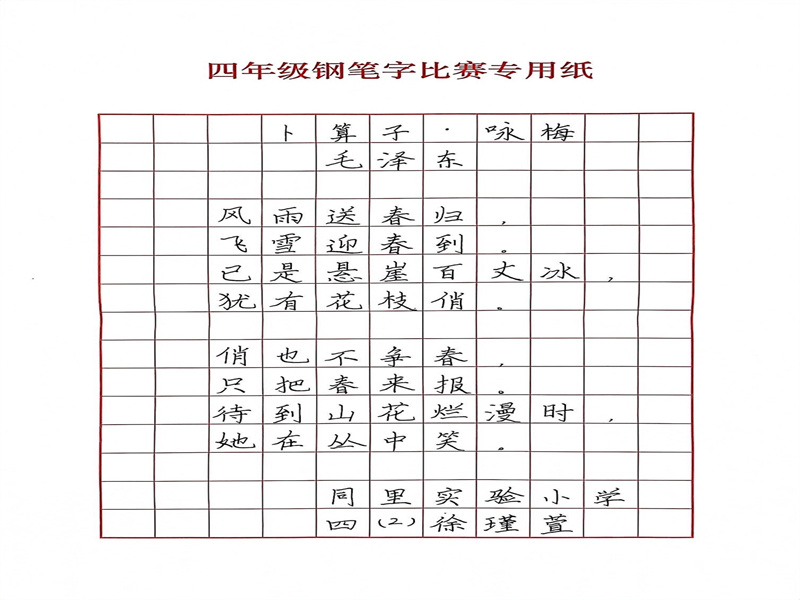 四年级钢笔字比赛专用纸
卜算子·咏梅
毛泽东
风雨送春归，
飞雪迎春到。
已是悬崖百丈冰，
犹有花枝俏。
俏也不争春，
只把春来报。
待到山花烂漫时，
她在丛中笑。
同里实验小学
四（2）徐瑾萱